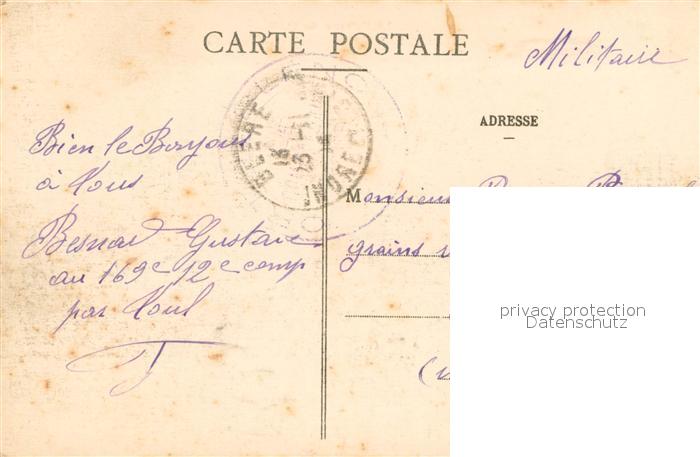 CARTE POSTALE
Militaire
ADRESSE
BLERE
INDRE
Bien le Bonjour
à tous
Besnard Gustave
au 169e 12e comp
par Toul
Monsieur
grains
privacy protection
Datenschutz